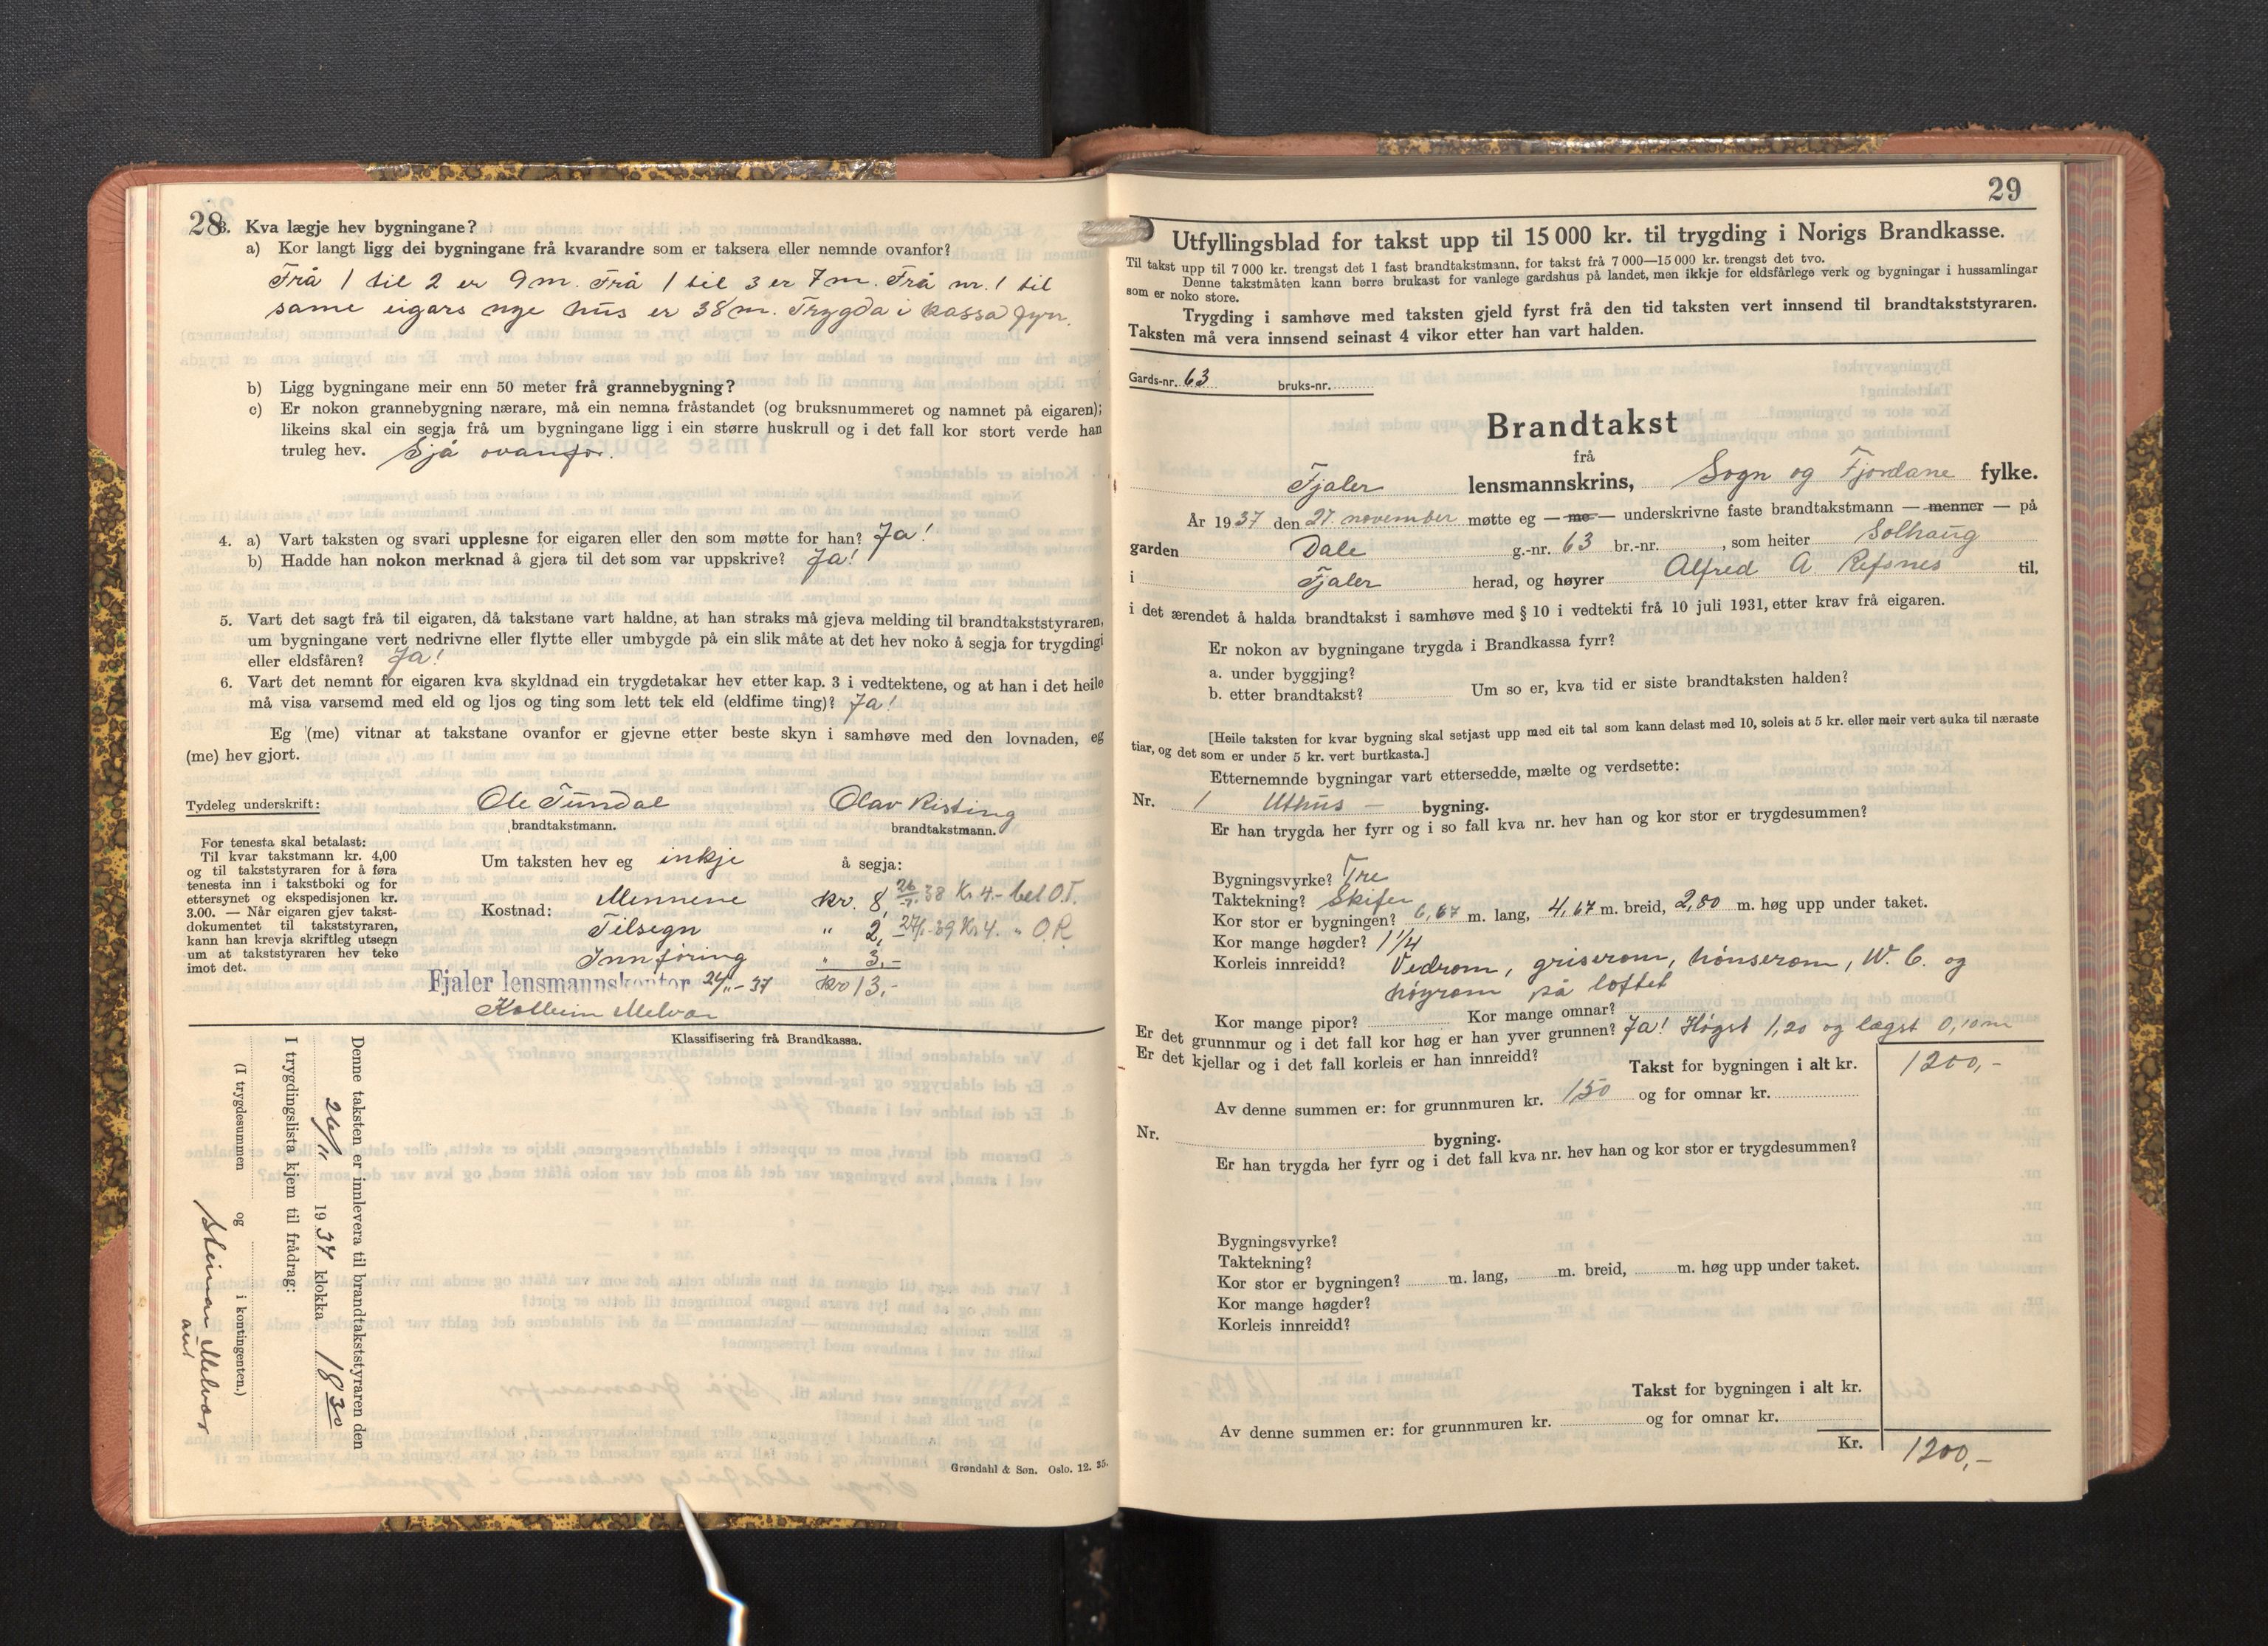 28
3. Kva lægje hev bygningane?
a) Kor langt ligg dei bygningane frå kvarandre som er taksera eller nemnde ovanfor?
Frå 1 til 2 er 9 m. Frå 1 til 3 er 7 m. Frå nr. 1 til
same eigars nye hus er 38 m. Trygda i kassa fyrr.
b) Ligg bygningane meir enn 50 meter frå grannebygning?
c) Er nokon grannebygning nærare, må ein nemna fråstandet (og bruksnummeret og namnet på eigaren);
likeins skal ein segja frå um bygningane ligg i ein større huskrull og i det fall kor stort verde han
truleg hev. Sjå ovanfor.
4. a) Vart taksten og svari upplesne for eigaren eller den som møtte for han? Ja!
b) Hadde han nokon merknad å gjera til det som var uppskrive? Ja!
5. Vart det sagt frå til eigaren, då takstane vart haldne, at han straks må gjeva melding til brandtakststyraren,
um bygningane vert nedrivne eller flytte eller umbygde på ein slik måte at det hev noko å segja for trygdingi
eller eldsfåren? Ja!
6. Vart det nemnt for eigaren kva skyldnad ein trygdetakar hev etter kap. 3 i vedtektene, og at han i det heile
må visa varsemd med eld og ljos og ting som lett tek eld (eldfime ting)? Ja!
Eg (me) vitnar at takstane ovanfor er gjevne etter beste skyn i samhøve med den lovnaden, eg
(me) hev gjort.
Tydeleg underskrift: Ole Tundal Olav Risting
brandtakstmann. brandtakstmann.
For tenesta skal betalast:
Til kvar takstmann kr. 4,00
og til takststyraren for å føra
tenesta inn i takstboki og for
ettersynet og ekspedisjonen kr.
3.00. — Når eigaren gjev takst-
dokumentet til takststyraren,
kann han krevja skriftleg utsegn
um at takststyraren hev teke
imot det.
Um taksten hev eg inkje å segja:
Kostnad: Mennene kr. 8, 26/7.38 Kr 4.- bet O.T.
Tilsegn " 2, 27/1-39 Kr 4. " O.R
Innføring " 3,-
Fjaler lensmannskontor 24/11-37 kr 13,-
Kolbein Melvær
Klassifisering frå Brandkassa.
Denne taksten er innlevera til brandtakststyraren den
26/11 1937 klokka 18 30
I trygdingslista kjem til frådrag:
(I trygdesummen og i kontingenten.)
Steinar Melvær
ass
Grøndahl & Søn. Oslo. 12. 35.
29
Utfyllingsblad for takst upp til 15 000 kr. til trygding i Norigs Brandkasse.
Til takst upp til 7 000 kr. trengst det 1 fast brandtakstmann, for takst frå 7 000—15 000 kr. trengst det tvo.
Denne takstmåten kann berre brukast for vanlege gardshus på landet, men ikkje for eldsfårlege verk og bygningar i hussamlingar
som er noko store.
Trygding i samhøve med taksten gjeld fyrst frå den tid taksten vert innsend til brandtakststyraren.
Taksten må vera innsend seinast 4 vikor etter han vart halden.
Gards-nr. 63 bruks-nr.
Brandtakst
frå
Fjaler lensmannskrins, Sogn og Fjordane fylke.
År 1937 den 27. november møtte eg — me — underskrivne faste brandtakstmann — menner — på
garden Dale g.-nr. 63 br.-nr. , som heiter Solhaug
i Fjaler herad, og høyrer Alfred A. Refsnes til,
i det ærendet å halda brandtakst i samhøve med § 10 i vedtekti frå 10 juli 1931, etter krav frå eigaren.
Er nokon av bygningane trygda i Brandkassa fyrr?
a. under byggjing?
b. etter brandtakst? Um so er, kva tid er siste brandtaksten halden?
[Heile taksten for kvar bygning skal setjast upp med eit tal som kann delast med 10, soleis at 5 kr. eller meir vert auka til næraste
tiar, og det som er under 5 kr. vert burtkasta.]
Etternemnde bygningar vart ettersedde, mælte og verdsette:
Nr. 1 Uthus — bygning.
Er han trygda her fyrr og i so fall kva nr. hev han og kor stor er trygdesummen?
Bygningsvyrke? Tre
Taktekning? Skifer
Kor stor er bygningen? 6,67 m. lang, 4,67 m. breid, 2,80 m. høg upp under taket.
Kor mange høgder? 1 1/4
Korleis innreidd? Vedrom, griserom, hønserom, W. C. og
høyrom på loftet
Kor mange pipor? Kor mange omnar?
Er det grunnmur og i det fall kor høg er han yver grunnen? Ja! Høgst 1,20 og lægst 0,10 m
Er det kjellar og i det fall korleis er han innreidd?
Takst for bygningen i alt kr. 1200,-
Av denne summen er: for grunnmuren kr. 150 og for omnar kr.
Nr. bygning.
Er han trygda her fyrr og i det fall kva nr. hev han og kor stor er trygdesummen?
Bygningsvyrke?
Taktekning?
Kor stor er bygningen? m. lang, m. breid, m. høg upp under taket.
Kor mange høgder?
Korleis innreidd?
Takst for bygningen i alt kr.
Av denne summen er: for grunnmuren kr. og for omnar kr.
Kr. 1200,-